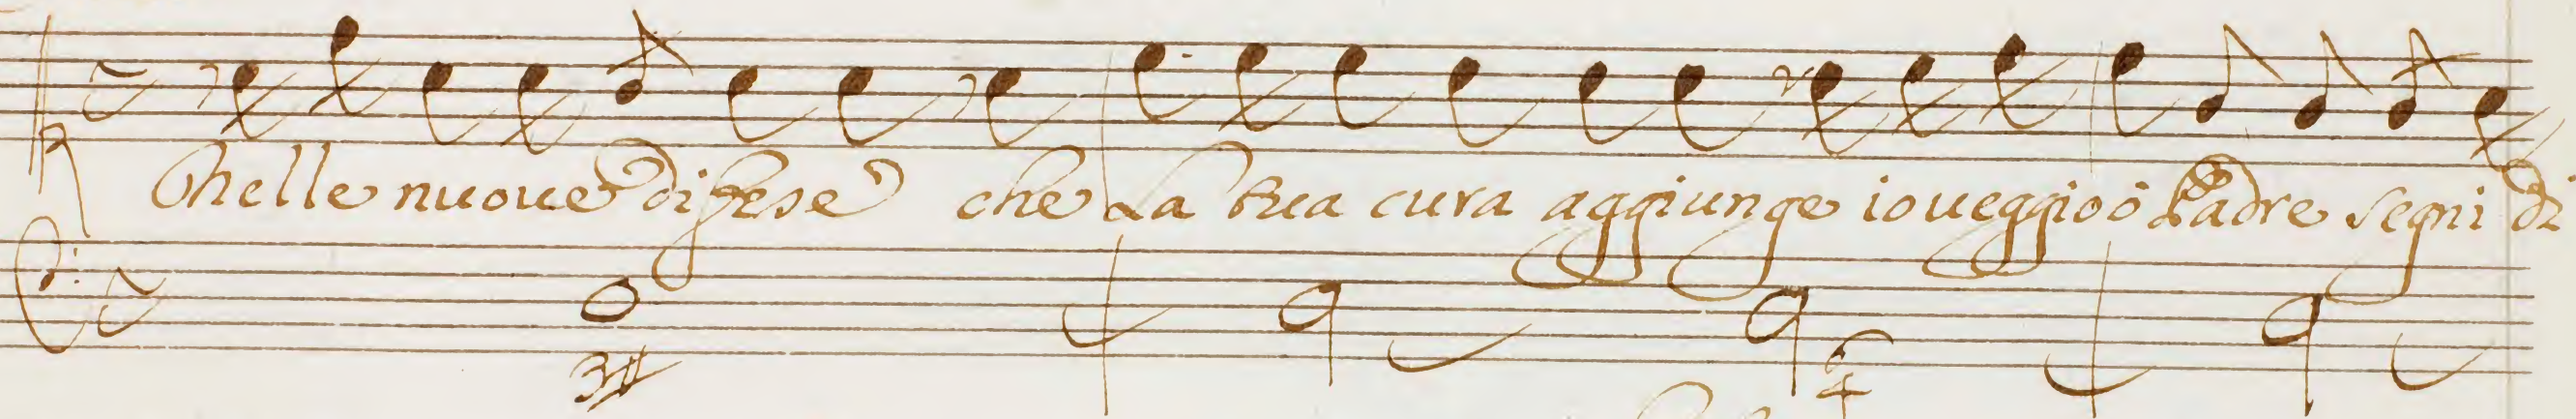 Nelle nuoue difese che La tua cura aggiunge io ueggio ò Padre segni di
3#
6
4